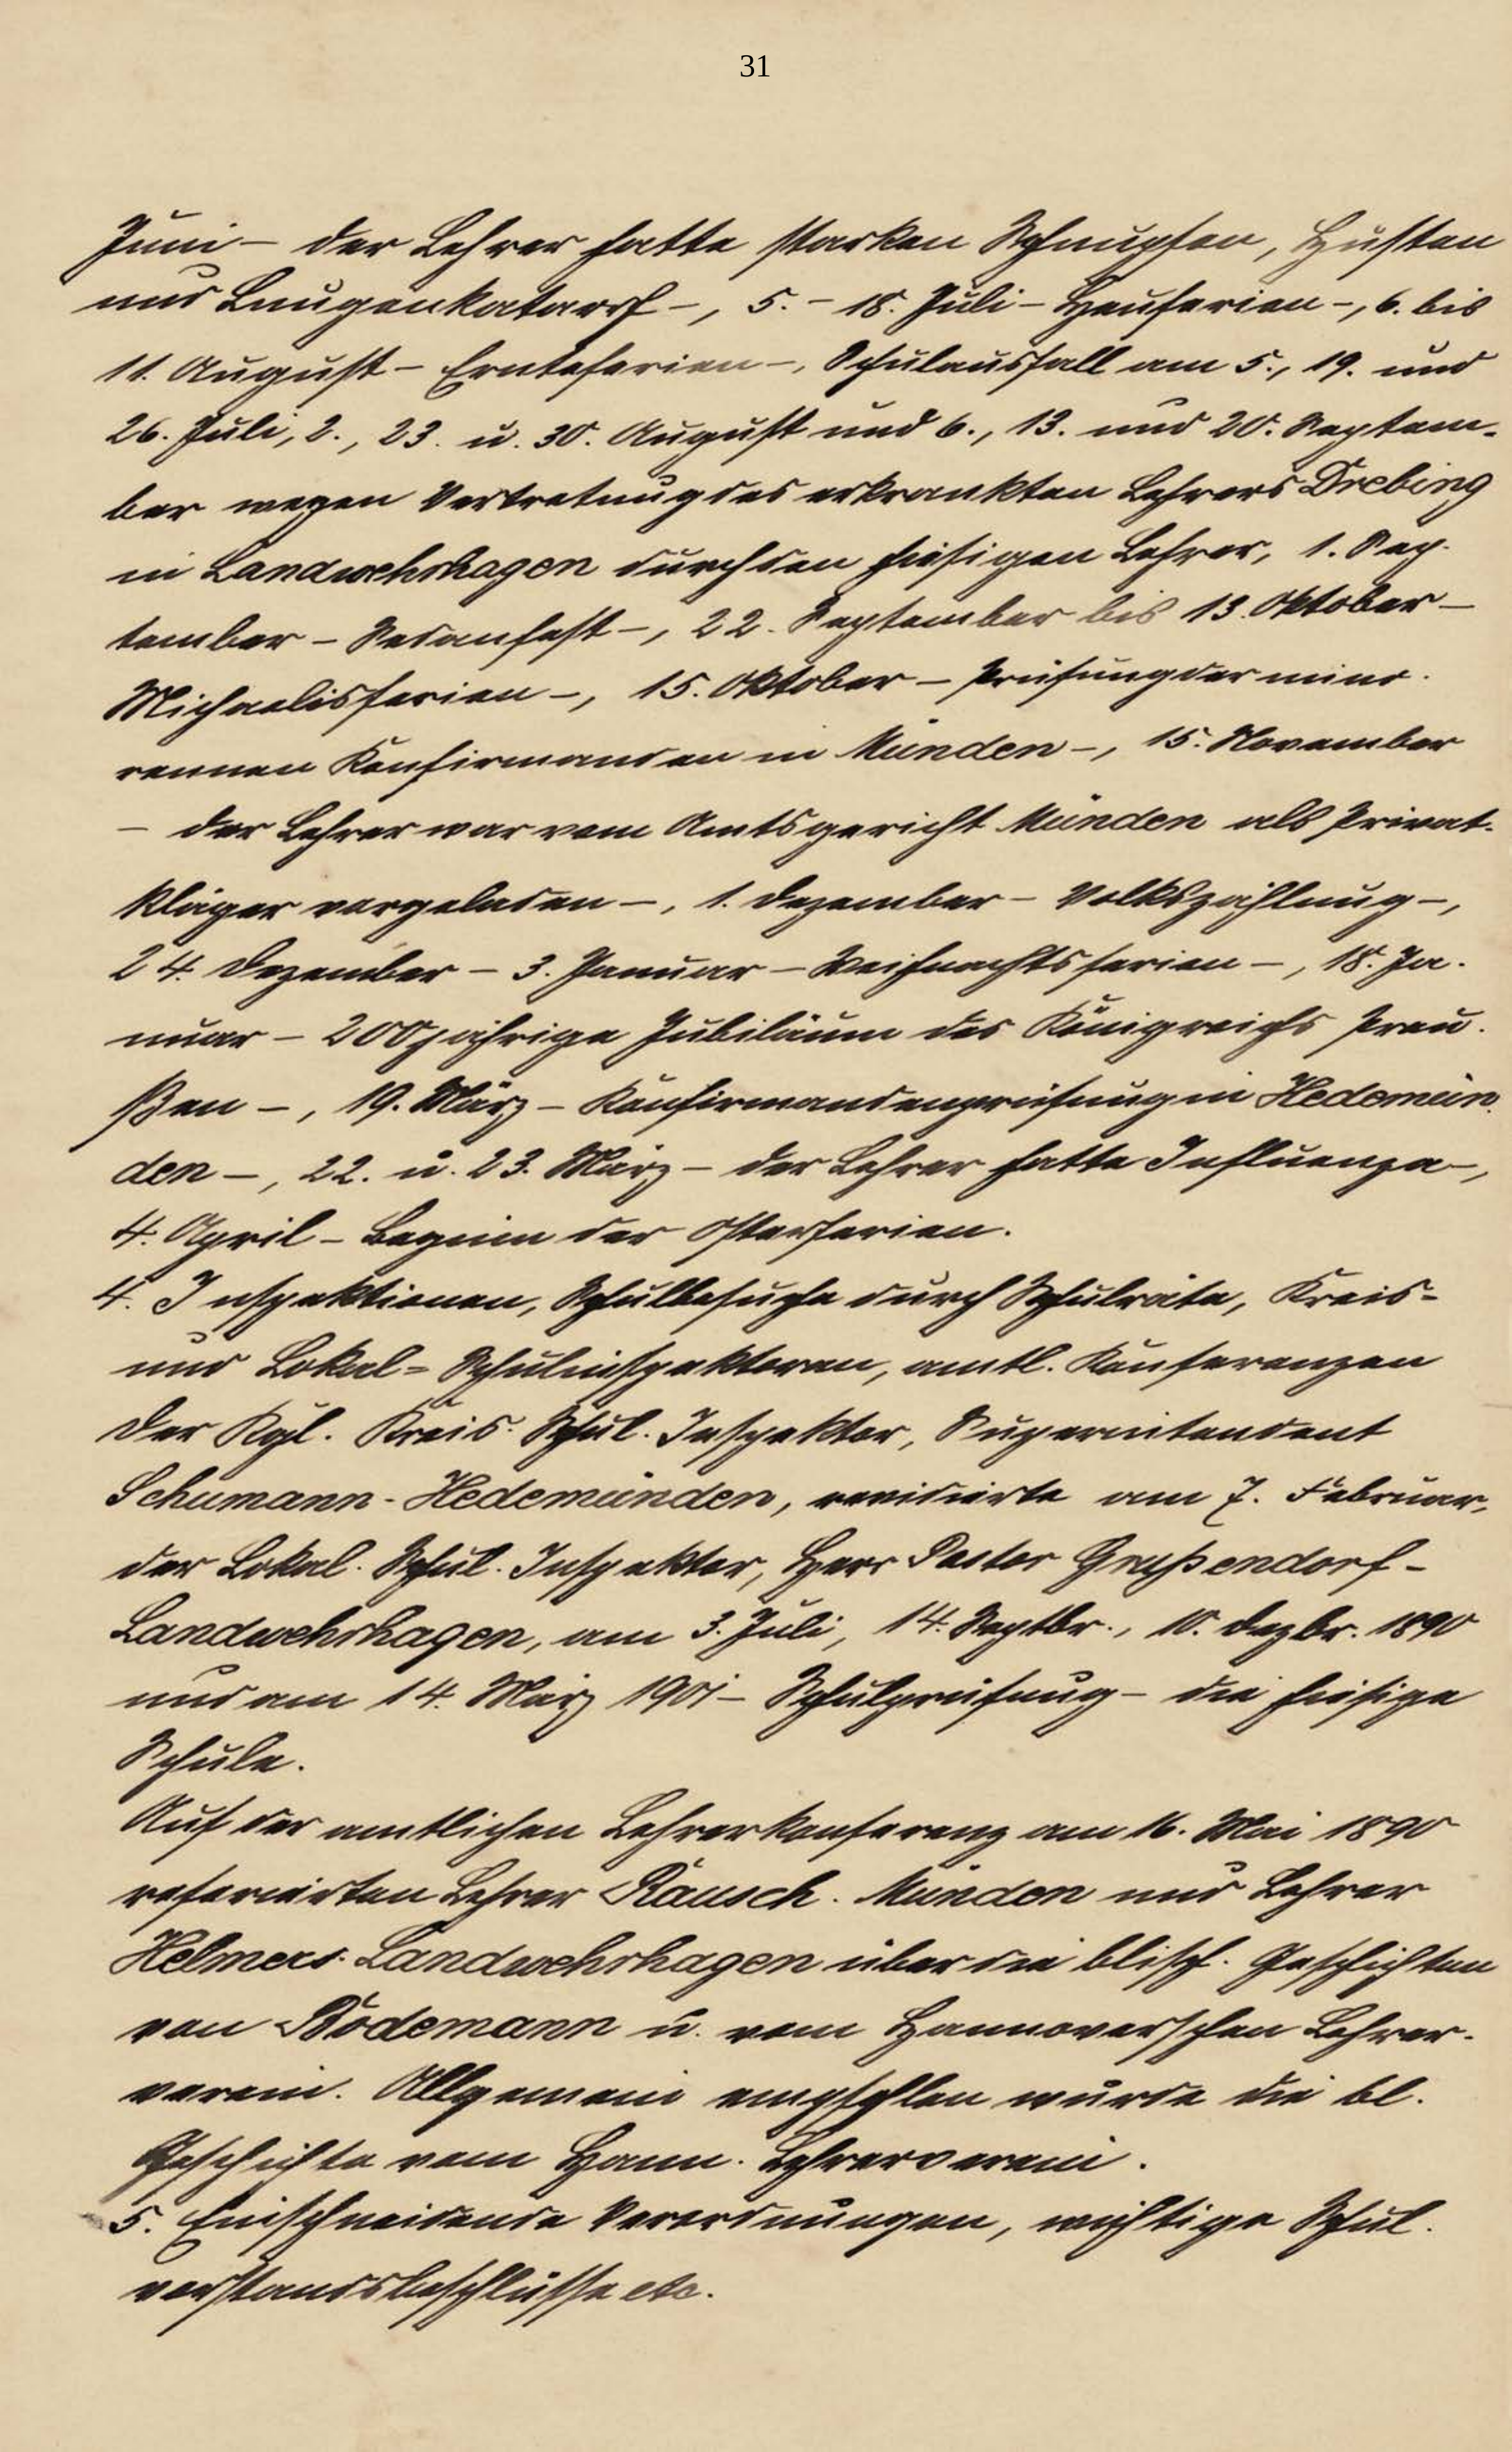 31
Juni – der Lehrer hatte starken Schnupfen, Husten
und Lungenkatarrh –, 5. – 18. Juli – Heuferien –, 6. bis
11. August – Ernteferien –, Schulausfall am 5., 19. und
26. Juli, 2., 23. u. 30. August und 6., 13. und 20. Septem-
ber wegen Vertretung des erkrankten Lehrers Drebing
in Landwehrhagen durch den hiesigen Lehrer, 1. Sep-
tember – Sedanfest –, 22. September bis 13. Oktober –
Michaelisferien –, 15. Oktober – Prüfung der mino-
rennen Konfirmanden in Münden –, 15. November
– der Lehrer war vom Amtsgericht Münden als Privat-
kläger vorgeladen –, 1. Dezember – Volkszählung –,
24. Dezember – 3. Januar – Weihnachtsferien –, 18. Ja-
nuar – 200jährige Jubiläum des Königreichs Preu-
ßen –, 19. März – Konfirmandenprüfung in Hedemün-
den –, 22. u. 23. März – der Lehrer hatte Influenza –,
4. April – Beginn der Osterferien.
4. Inspektionen, Schulbesuche durch Schulräte, Kreis-
und Lokal-Schulinspektoren, amtl. Konferenzen
Der Kgl. Kreis-Schul-Inspektor, Superintendent
Schumann-Hedemünden, revidierte am 7. Februar,
der Lokal-Schul-Inspektor, Herr Pastor Grußendorf-
Landwehrhagen, am 3. Juli, 14. Septbr., 10. Dezbr. 1890
und am 14. März 1901 – Schulprüfung – die hiesige
Schule.
Auf der amtlichen Lehrerkonferenz am 16. Mai 1890
referierten Lehrer Rausch-Münden und Lehrer
Helmers-Landwehrhagen über die blisch. Geschichten
von Bodemann u. vom Hannoverschen Lehrer-
verein. Allgemein empfohlen wurde die bl.
Geschichte vom Hann. Lehrerverein.
5. Einschneidende Verordnungen, wichtige Schul-
vorstandsbeschlüsse etc.